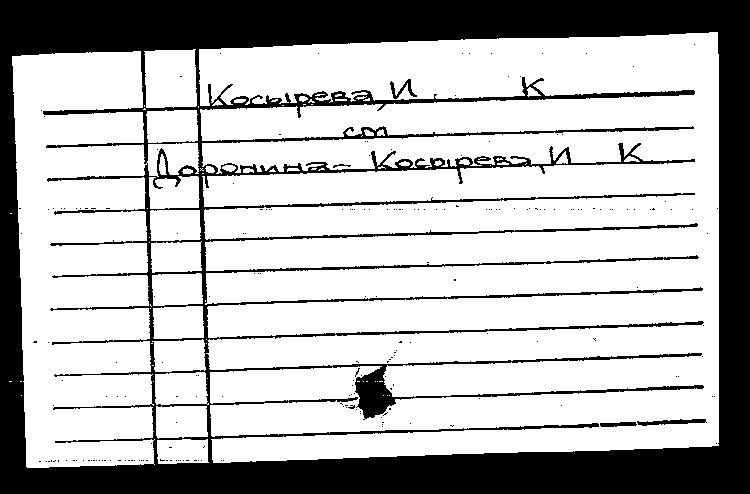 Косырева, И. К
см
Доронина- Косырева, И К